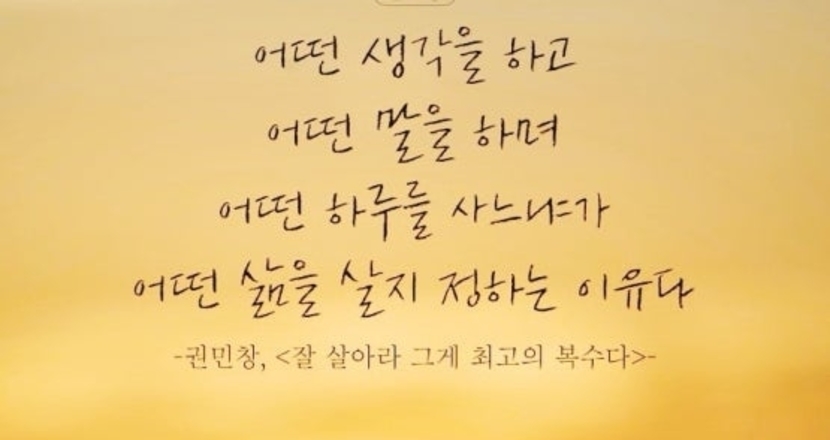 어떤 생각을 하고
어떤 말을 하며
어떤 하루를 사느냐가
어떤 삶을 살지 정하는 이유다
-권민창, <잘 살아라 그게 최고의 복수다>-